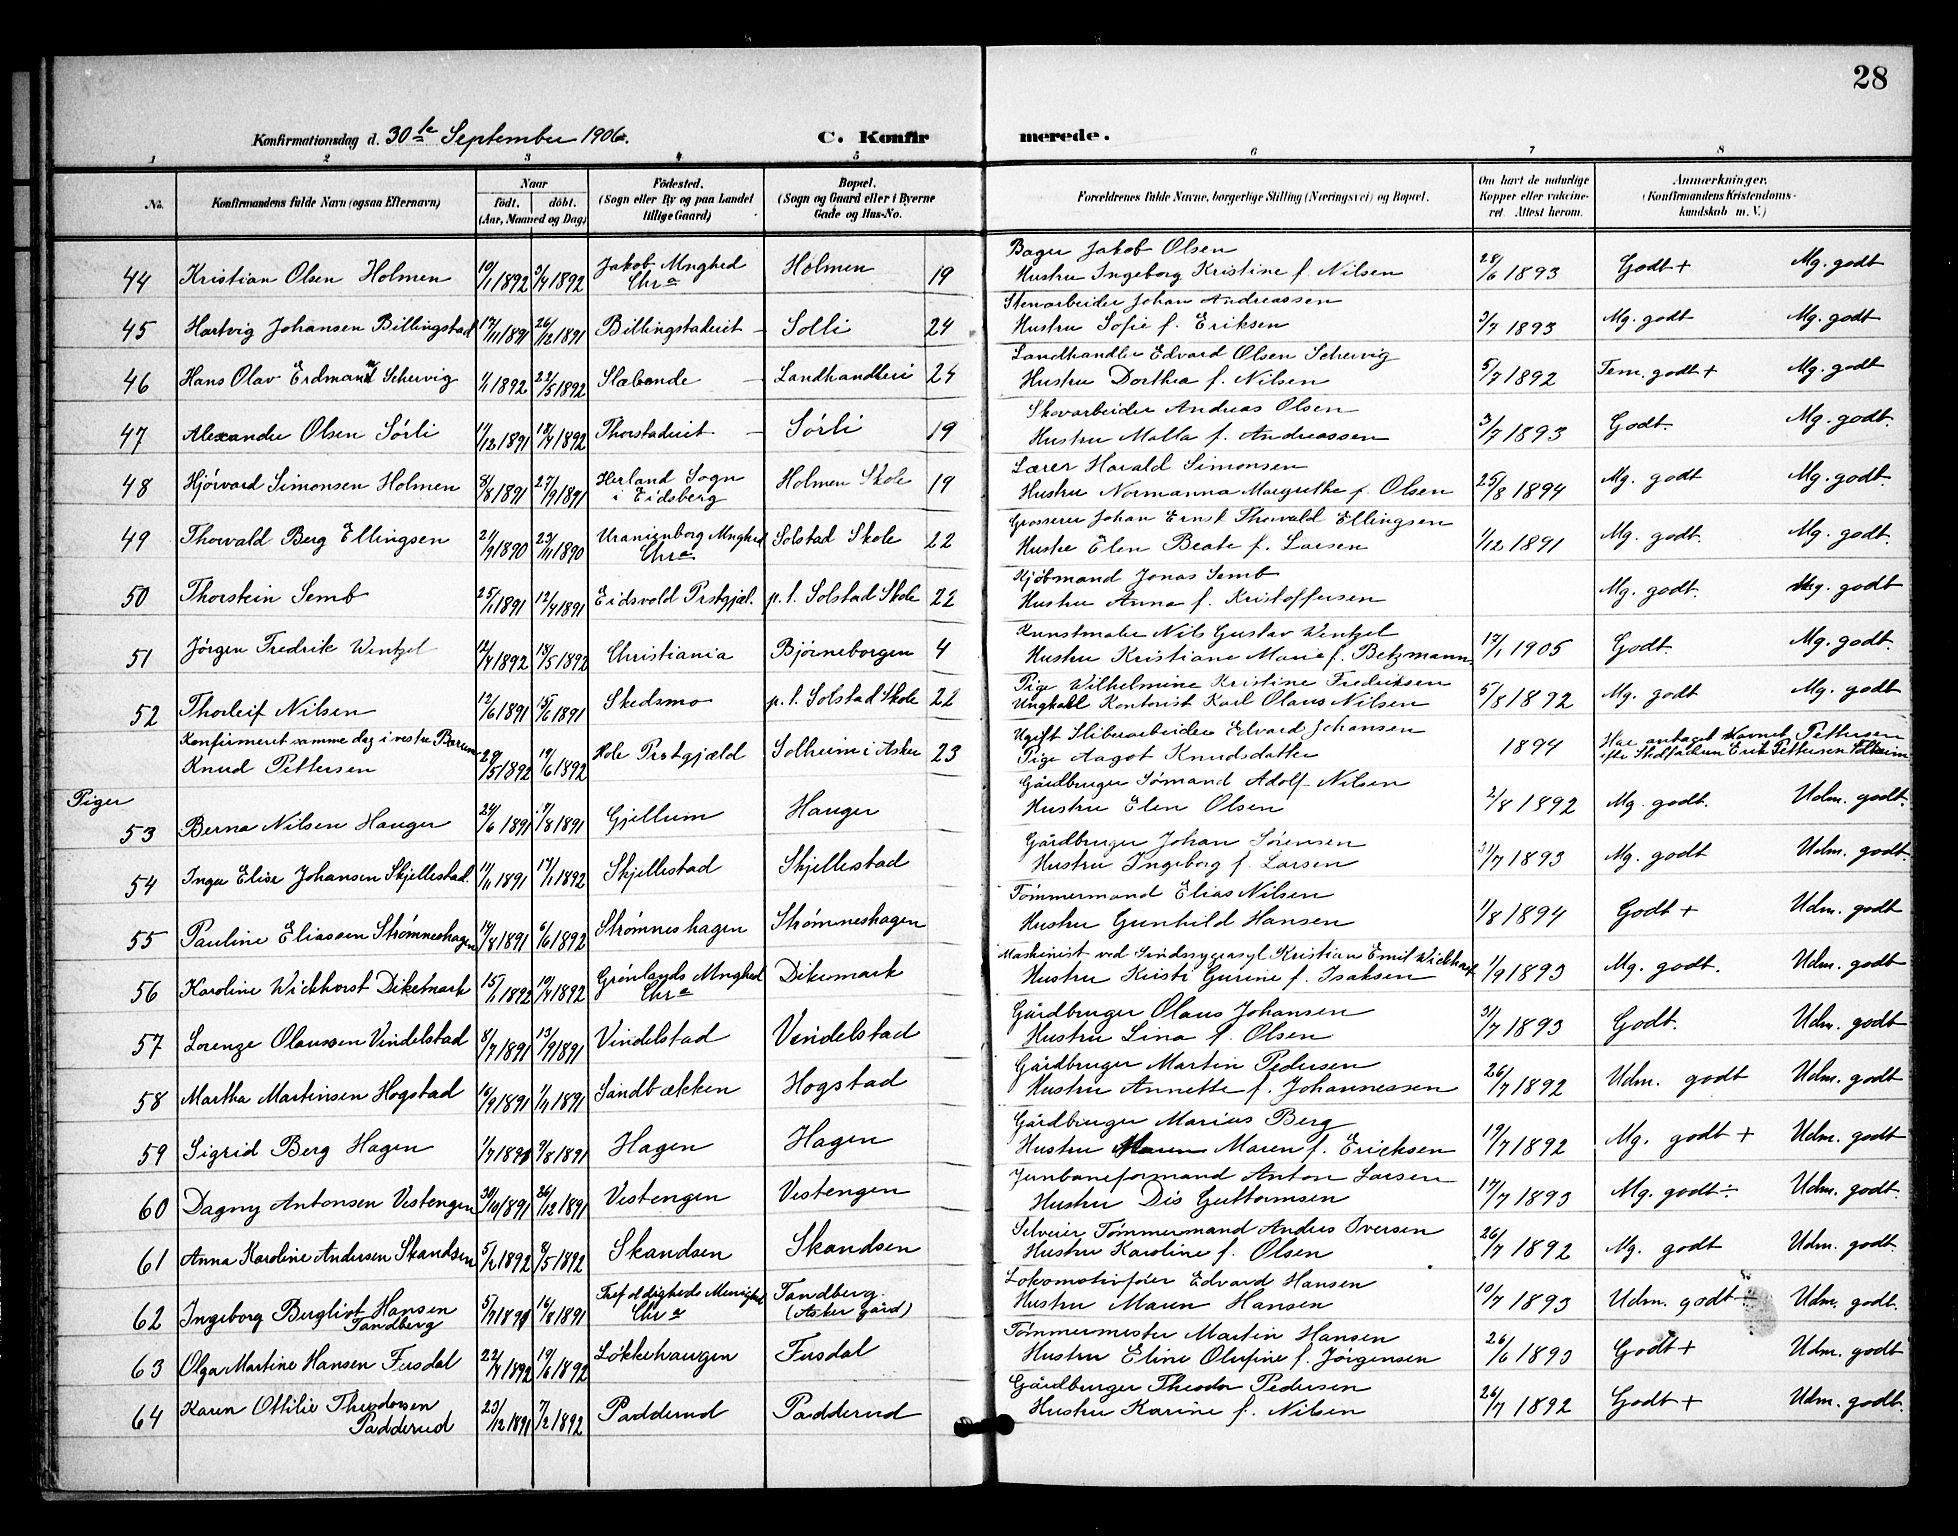 28
Konfirmationsdag d. 30te September 1906.
C. Konfirmerede.
1 2 3 4 5 6 7 8
No.
Konfirmandens fulde Navn (ogsaa Efternavn)
Naar
født. døbt.
(Aar, Maaned og Dag)
Fødested.
(Sogn eller By og paa Landet
tillige Gaard)
Bopæl.
(Sogn og Gaard eller i Byerne
Gade og Hus-No.
Forældrenes fulde Navne, borgerlige Stilling (Næringsvei) og Bopæl.
Om havt de naturlige
Kopper eller vakcine-
ret. Attest herom.
Anmærkninger.
(Konfirmandens Kristendoms-
kundskab m. V.)
44 Kristian Olsen Holmen 10/1 1892 3/4 1892 Jakob Mnghed Chra Holmen 19
Bager Jakob Olsen
Hustru Ingeborg Kristine f. Nilsen 28/6 1893 Godt + Mg. godt
45 Hartvig Johansen Billingstad 17/11 1891 26/12 1891 Billingstadeiet – Solli 24
Stenarbeider Johan Andreassen
Hustru Sofie f. Eriksen 3/7 1893 Mg. godt Mg. godt
46 Hans Olav Erdmann Schervig 1/1 1892 22/5 1892 Slæbende – Landhandleri 24
Landhandler Edvard Olsen Schervig
Hustru Dorthea f. Nilsen 5/7 1892 Tem. godt + Mg. godt
47 Alexander Olsen Sørli 11/12 1891 18/4 1892 Thorstadeiet – Sørli 19
Skovarbeider Andreas Olsen
Hustru Malla f. Andreassen 3/7 1893 Godt. Mg. godt.
48 Hjørvard Simonsen Holmen 8/8 1891 27/9 1891 Herland Sogn i Eidsberg Holmen Skole 19
Lærer Harald Simonsen
Hustru Normanna Margrethe f. Olsen 25/8 1894 Mg. godt Mg. godt.
49 Thorvald Berg Ellingsen 21/9 1890 23/11 1890 Uranienborg Mnghed Chra Solstad Skole 22
Grosserer Johan Ernst Thorvald Ellingsen
Hustru Elen Beate f. Larsen 1/12 1891 Mg. godt. Mg. godt.
50 Thorstein Semb 25/1 1891 12/4 1891 Eidsvold Prstgjæl. p. t. Solstad Skole 22
Kjøbmand Jonas Semb
Hustru Anna f. Kristoffersen Mg. godt. Mg. godt
51 Jørgen Fredrik Wentzel 12/4 1892 18/5 1892 Christiania Bjørneborgen 4
Kunstmaler Nils Gustav Wentzel
Hustru Kristiane Marie f. Betzmann 17/1 1905 Godt. Mg. godt.
52 Thorleif Nilsen 12/6 1891 15/6 1891 Skedsmo p. t. Solstad Skole 22
Pige Wilhelmine Kristine Fredriksen
Ungkarl Kontorist Karl Olaus Nilsen 5/8 1892 Mg. godt Mg. godt
Konfirmeret samme dag i vestre Bærum
Knud Pettersen 29/5 1892 19/6 1892 Hole Prstgjæld Solheim i Asker 23
Ugift Sliberarbeider Edvard Johansen
Pige Aagot Knudsdatter 1894 Har antaget Navnet Pettersen
efter Stedfaderen Erik Pettersen Solheim
Piger
53 Berna Nilsen Hauger 24/6 1891 17/8 1891 Gjellum Hauger
Gårdbruger Sømand Adolf Nilsen
Hustru Elen Olsen 2/8 1892 Mg. godt. Udm. godt.
54 Inga Elise Johansen Skjellestad. 11/11 1891 17/1 1892 Skjellestad Skjellestad
Gårdbruger Johan Sørensen
Hustru Ingeborg f. Larsen 31/7 1893 Mg. godt Udm. godt.
55 Pauline Eliassen Strømneshagen 14/8 1891 6/6 1892 Strømneshagen Strømneshagen
Tømmermand Elias Nilsen
Hustru Gunhild Hansen 1/8 1894 Godt + Udm. godt
56 Karoline Wickhorst Dikemark 15/1 1892 10/4 1892 Grønlands Mnghed Chra Dikemark
Maskinist ved Sindssygeasyl Kristian Emil Wickhorst
Hustru Kristi Gurine f. Isaksen 1/9 1893 Mg. godt. Udm. godt.
57 Lorenze Olaussen Vindelstad 8/7 1891 13/9 1891 Vindelstad Vendelstad
Gårdbruger Olaus Johansen
Hustru Lina f. Olsen 31/7 1893 Godt. Udm. godt
58 Martha Martinsen Hogstad 16/9 1891 1/11 1891 Sandbækken Hogstad
Gårdbruger Martin Pedersen
Hustru Annette f. Johannessen 26/7 1892 Udm. godt Udm. godt.
59 Sigrid Berg Hagen 1/7 1891 9/8 1891 Hagen Hagen
Gårdbruger Marius Berg
Hustru Maren f. Ericksen 19/7 1892 Mg. godt + Udm. godt
60 Dagny Antonsen Vestengen 30/10 1891 26/12 1891 Vestengen Vestengen
Jernbaneformand Anton Larsen
Hustru Dis Guttormsen 17/7 1893 Mg. godt ÷ Udm. godt.
61 Anna Karoline Andersen Skandsen 5/2 1892 8/5 1892 Skandsen Skandsen
Selveier Tømmermand Anders Iversen
Hustru Karoline f. Olsen 26/7 1892 Mg. godt Udm. godt.
62 Ingeborg Bergliot Hansen Tandberg 5/7 1891 16/8 1891 Trefoldigheds Menighed Chra Tandberg. (Asker gård)
Lokomotivfører Edvard Hansen
Hustru Maren Hansen 10/7 1893 Udm. godt Udm. godt.
63 Olga Martine Hansen Fusdal 22/4 1892 19/6 1892 Løkkehaugen Fusdal
Tømmermester Martin Hansen
Hustru Eline Olufine f. Jørgensen 26/6 1893 Godt + Udm. godt
64 Karen Ottilie Theodorsen Padderud 23/12 1891 7/2 1892 Padderud Padderud
Gårdbruger Theodor Pedersen
Hustru Karine f. Nilsen 26/7 1892 Godt + Udm. godt.